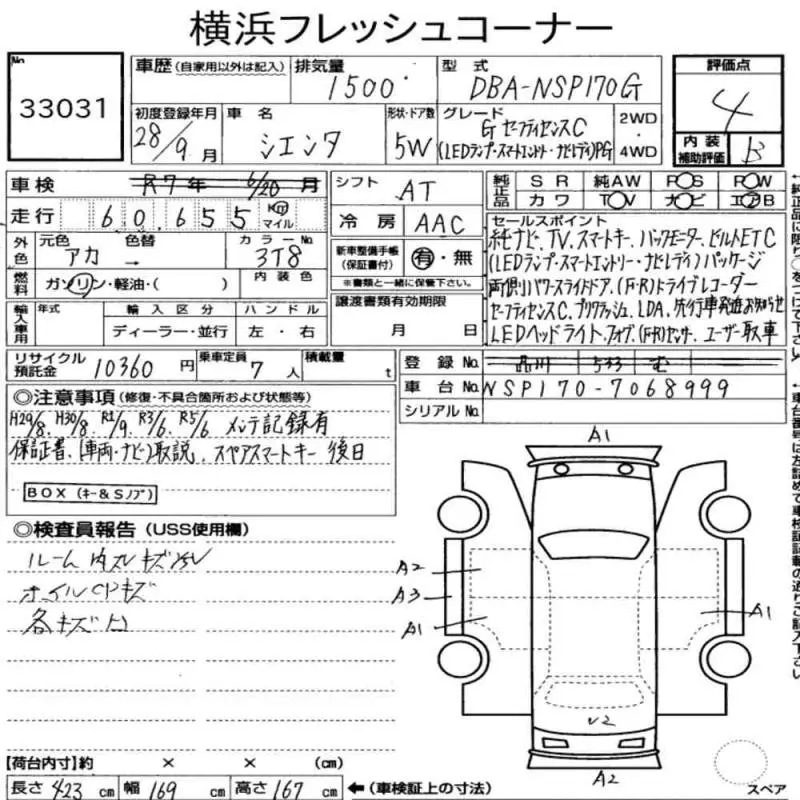 横浜フレッシュコーナー
No
33031
車歴 (自家用以外は記入)
排気量
1500
型 式
DBA-NSP170G
評価点
4
内装
補助評価
B
初度登録年月
28/9 月
車 名
シエンタ
形状・ドア数
5W
グレード
G セーフティセンスC
(LEDランプ・スマートエントリー・ナビレディ)PG
2WD
・
4WD
車検
R7年 6/20 月
走行
60,655
Km
マイル
シフト
AT
冷房
AAC
純正品
SR 純AW PS PW
カワ TV ナビ エアB
外色
元色 色替
アカ →
カラーNo
3T8
燃料
ガソリン・軽油・( )
内装色
新車整備手帳
(保証書付)
有・無
※書類と一緒に保管下さい。
セールスポイント
純ナビ、TV、スマートキー、バックモニター、ビルトETC
(LEDランプ・スマートエントリー・ナビレディ)パッケージ
両側パワースライドドア、(F・R)ドライブレコーダー
セーフティセンスC、プリクラッシュ、LDA、先行車発進お知らせ
LEDヘッドライト、フォグ、(F・R)センサ、ユーザー取車
輸入車用
年式
輸入区分
ディーラー・並行
ハンドル
左・右
譲渡書類有効期限
月 日
リサイクル
預託金
10360 円
乗車定員
7 人
積載量
t
登録No
品川 533 む
車台No
NSP170-7068999
シリアルNo
◎注意事項 (修復・不具合箇所および状態等)
H29/8、H30/8、R1/9、R3/6、R5/6 メンテ記録有
保証書、(車両・ナビ)取説、スペアスマートキー 後日
BOX (キー&Sノブ)
◎検査員報告 (USS使用欄)
ルーム 内
キズ
各キズ
A1
A2
A3
A1
A1
A2
スペア
【荷台内寸】約 × × (cm)
長さ 423 cm 幅 169 cm 高さ 167 cm ←(車検証上の寸法)